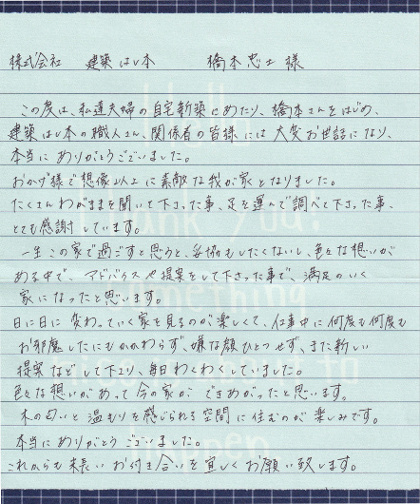 株式会社 建築はし本 橋本忠士様
この度は、私達夫婦の自宅新築にあたり、橋本さんをはじめ、
建築はし本の職人さん、関係者の皆様には大変お世話になり、
本当にありがとうございました。
おかげ様で想像以上に素敵な我が家となりました。
たくさんわがままを聞いて下さった事、足を運んで調べて下さった事、
とても感謝しています。
一生この家で過ごすと思うと、妥協もしたくないし、色々な想いが
ある中で、アドバイスや提案をして下さった事で、満足のいく
家になったと思います。
日に日に変わっていく家を見るのが楽しくて、仕事中に何度も何度も
お邪魔したにもかかわらず、嫌な顔ひとつせず、また新しい
提案などして下さり、毎日わくわくしていました。
色々な想いがあって今の家ができあがったと思います。
木の匂いと温もりを感じられる空間に住むのが楽しみです。
本当にありがとうございました。
これからも末長いお付き合いを宜しくお願い致します。